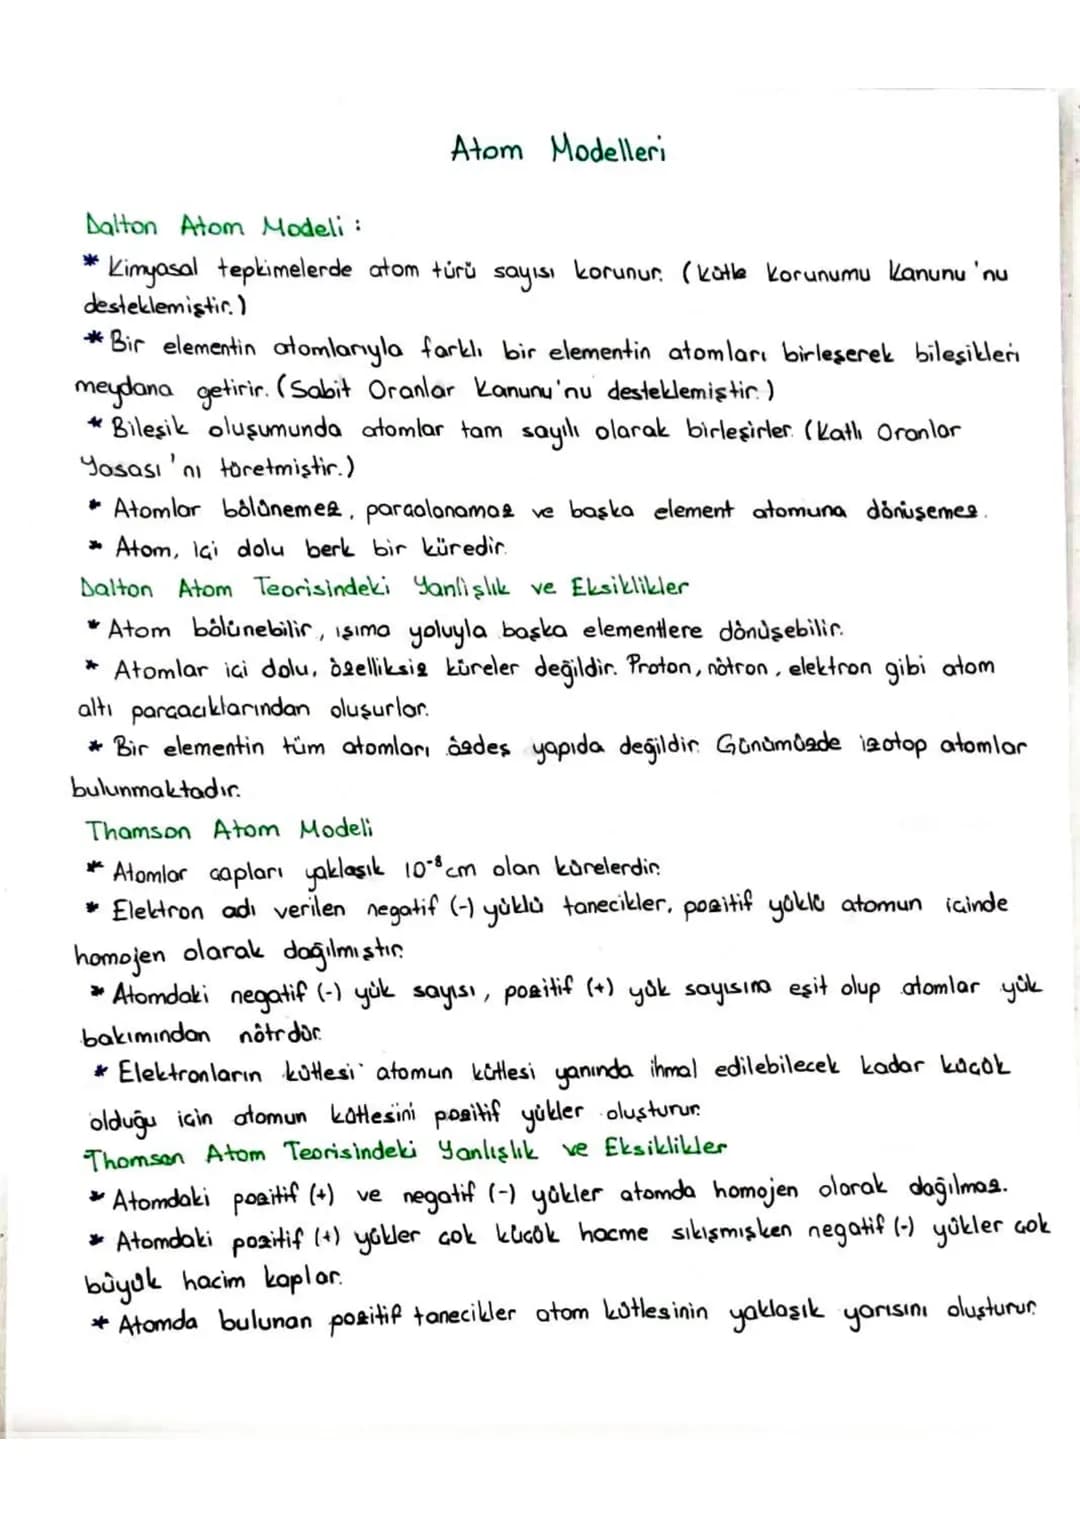 Atom Modelleri
Dalton Atom Modeli :
* Kimyasal tepkimelerde atom türü sayısı korunur. (Kütle Korunumu Kanunu'nu
desteklemiştir.)
* Bir elementin atomlarıyla farklı bir elementin atomları birleşerek bileşikleri
meydana getirir. (Sabit Oranlar Kanunu'nu desteklemiştir.)
* Bileşik oluşumunda atomlar tam sayılı olarak birleşirler. (Katlı Oranlar
Yasası'nı türetmiştir.)
* Atomlar bölünemez, parçalanamaz ve başka element atomuna dönüşemez.
* Atom, içi dolu berk bir küredir.
Dalton Atom Teorisindeki Yanlışlık ve Eksiklikler
* Atom bölünebilir, ışıma yoluyla başka elementlere dönüşebilir.
* Atomlar içi dolu, özelliksiz küreler değildir. Proton, nötron, elektron gibi atom
altı parçacıklarından oluşurlar.
* Bir elementin tüm atomları özdeş yapıda değildir. Günümüzde izotop atomlar
bulunmaktadır.
Thamson Atom Modeli
* Atomlar çapları yaklaşık 10⁻⁸ cm olan kürelerdir.
* Elektron adı verilen negatif (-) yüklü tanecikler, pozitif yüklü atomun içinde
homojen olarak dağılmıştır.
* Atomdaki negatif (-) yük sayısı, pozitif (+) yük sayısına eşit olup atomlar yük
bakımından nötrdür.
* Elektronların kütlesi atomun kütlesi yanında ihmal edilebilecek kadar küçük
olduğu için atomun kütlesini pozitif yükler oluşturur.
Thomson Atom Teorisindeki Yanlışlık ve Eksiklikler
* Atomdaki pozitif (+) ve negatif (-) yükler atomda homojen olarak dağılmaz.
* Atomdaki pozitif (+) yükler çok küçük hacme sıkışmışken negatif (-) yükler çok
büyük hacim kaplar.
* Atomda bulunan pozitif tanecikler atom kütlesinin yaklaşık yarısını oluşturur.